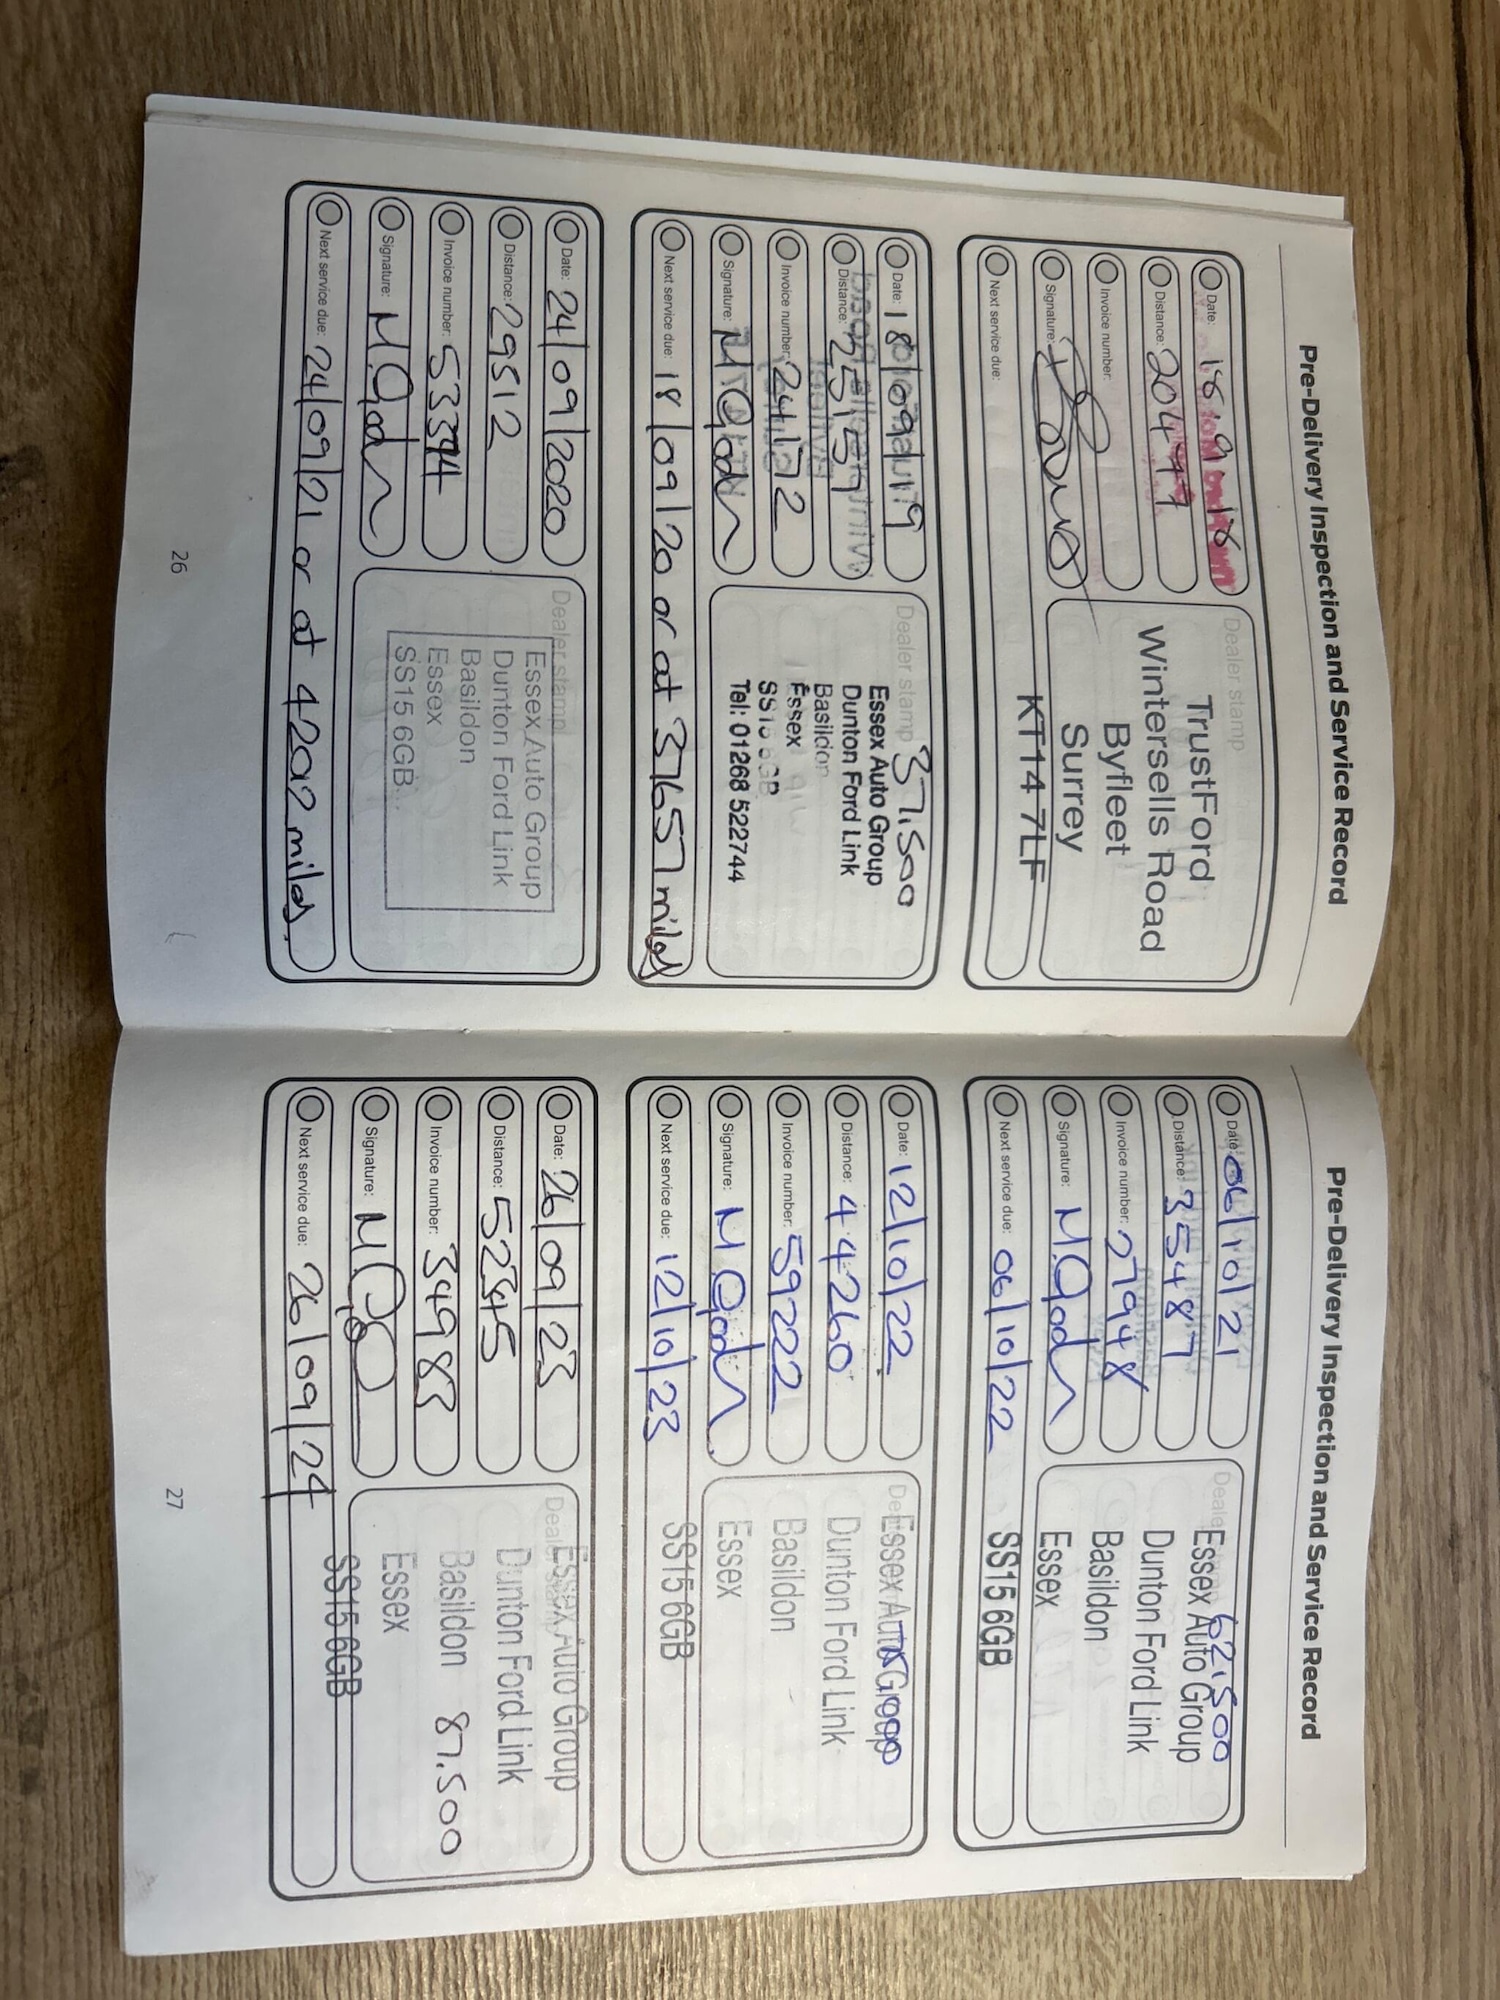 Pre-Delivery Inspection and Service Record
Date: 18.9.18
Distance: 20447
Invoice number:
Signature:
Next service due:
Dealer stamp
TrustFord
Wintersells Road
Byfleet
Surrey
KT14 7LF
Date: 18/09/19
Distance: 25157
Invoice number: 24172
Signature:
Next service due: 18/09/20 or at 37657 miles
Dealer stamp 37.500
Essex Auto Group
Dunton Ford Link
Basildon
Essex
SS15 6GB
Tel: 01268 522744
Date: 24/09/2020
Distance: 29512
Invoice number: 53374
Signature:
Next service due: 24/09/21 or at 42012 miles.
Dealer stamp
Essex Auto Group
Dunton Ford Link
Basildon
Essex
SS15 6GB
26
Pre-Delivery Inspection and Service Record
Date: 06/10/21
Distance: 35487
Invoice number: 27948
Signature:
Next service due: 06/10/22
62.500
Essex Auto Group
Dunton Ford Link
Basildon
Essex
SS15 6GB
Date: 12/10/22
Distance: 44260
Invoice number: 59222
Signature:
Next service due: 12/10/23
Essex Auto Group
Dunton Ford Link
Basildon
Essex
SS15 6GB
Date: 26/09/23
Distance: 52345
Invoice number: 34983
Signature:
Next service due: 26/09/24
Essex Auto Group
Dunton Ford Link
Basildon 87.500
Essex
SS15 6GB
27